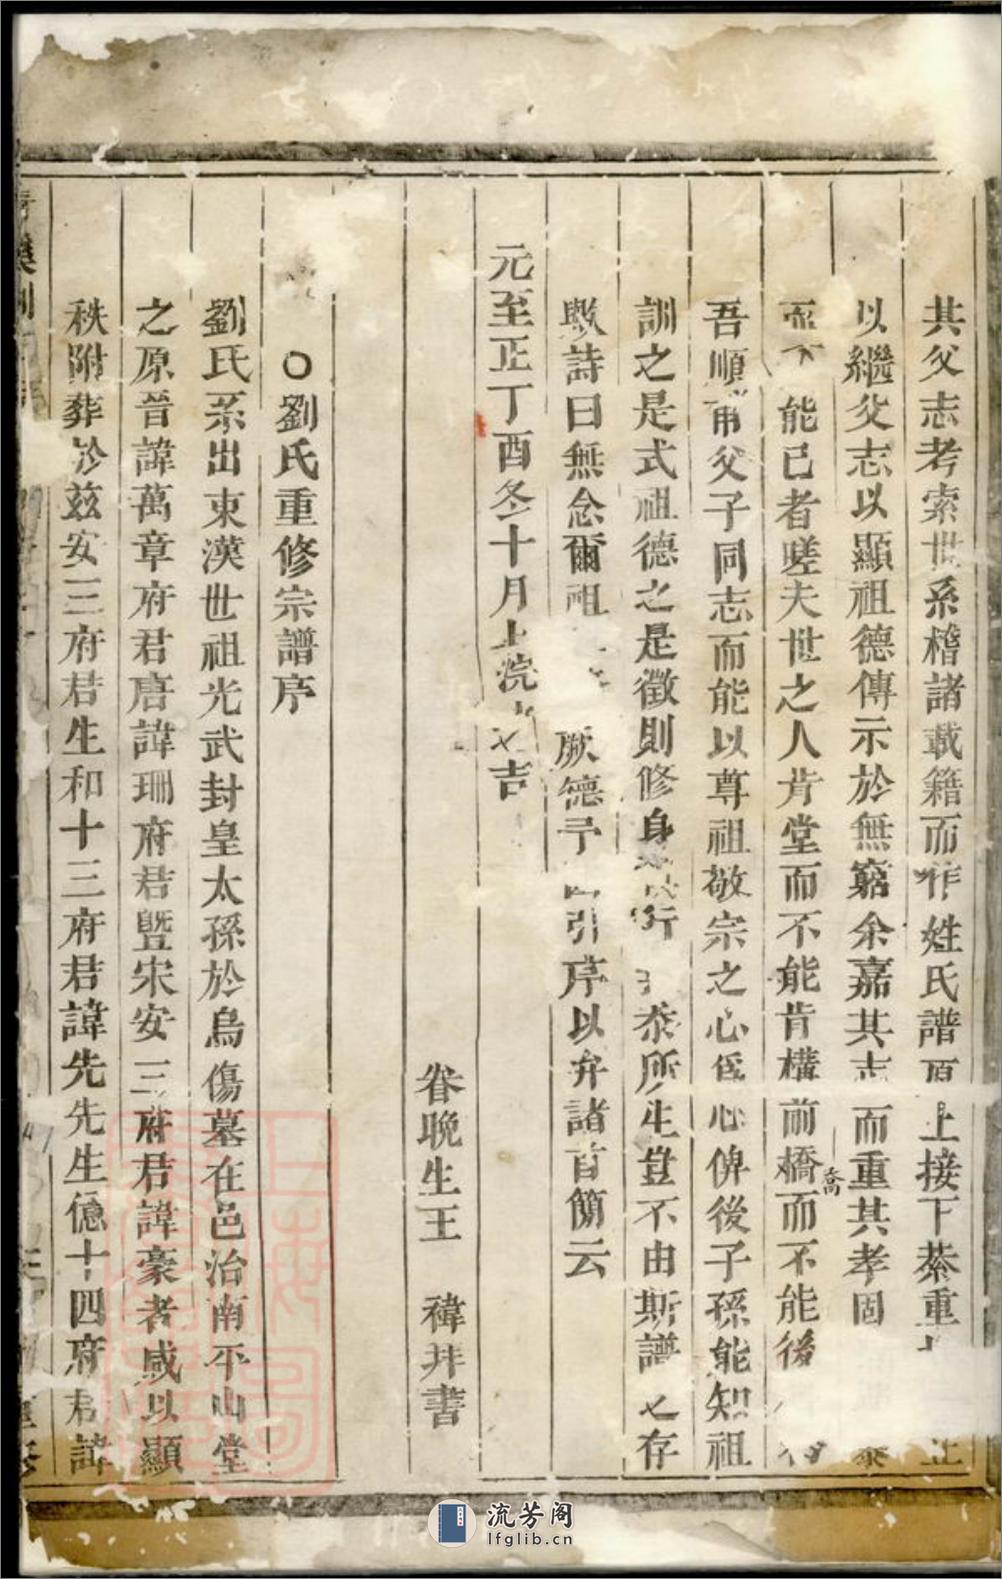 其父志考索世系稽諸載籍而作姓氏譜上接下蔡重
以繼父志以顯祖德傳示於無窮余嘉其志而重其孝固
而不能已者嗟夫世之人肯堂而不能肯構前橋而不能後
喬
吾順甫父子同志而能以尊祖敬宗之心為心俾後子孫能知祖
訓之是式祖德之是徵則修身 行 忝所生豈不由斯譜之存
歟詩曰無念爾祖 厥德予 引序以弁諸首簡云
元至正丁酉冬十月上浣之吉
眷晚生王 禕拜書
○劉氏重修宗譜序
劉氏系出東漢世祖光武封皇太孫於烏傷墓在邑治南平山堂
之原晉諱萬章府君唐諱珊府君暨宋安三府君諱豪者咸以顯
秩附葬於茲安三府君生和十三府君諱先先生億十四府君諱
重修
流芳阁
lfglib.cn